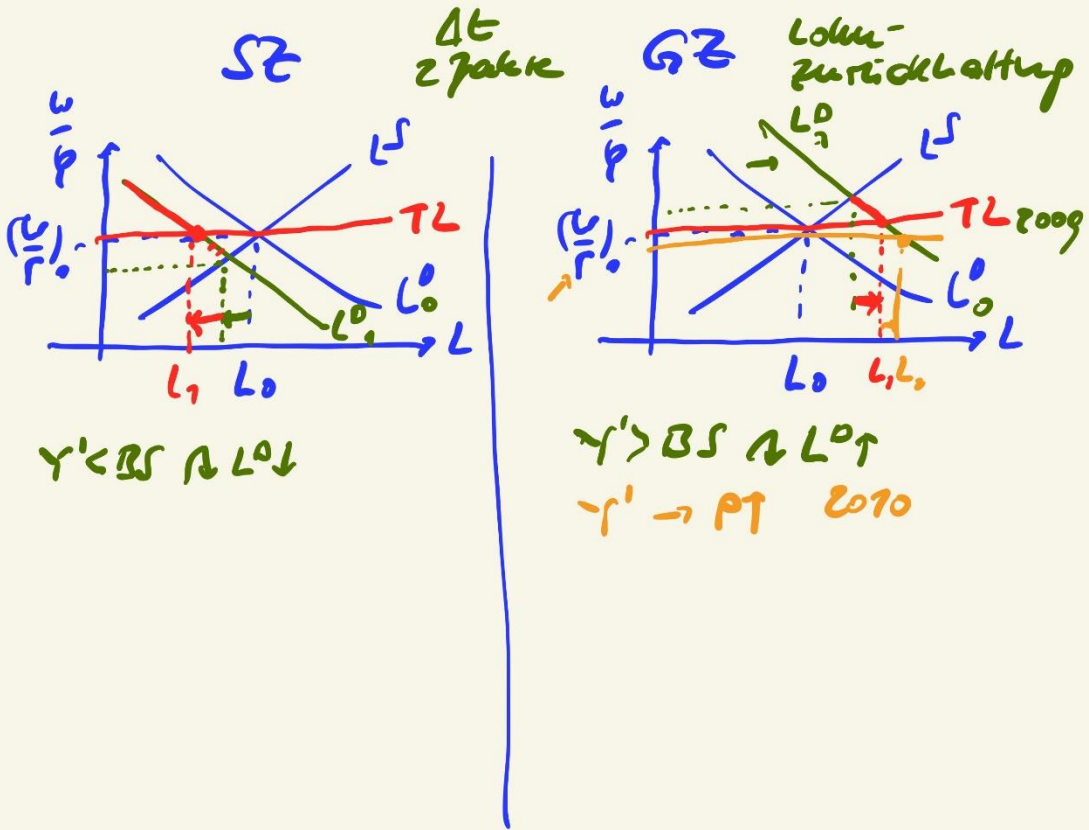 SZ
Δt
2 Jahre
w
P
(w/P)₀
Lˢ
TL
Lᴰ₀
Lᴰ₁
L
L₁ L₀
Y'<BS ↷ Lᴰ↓
GZ
Lohn-
zurückhaltung
w
P
(w/P)₀
Lᴰ₁
Lˢ
TL 2009
Lᴰ₀
L
L₀ L₁
Y'>BS ↷ Lᴰ↑
Y' → P↑ 2010